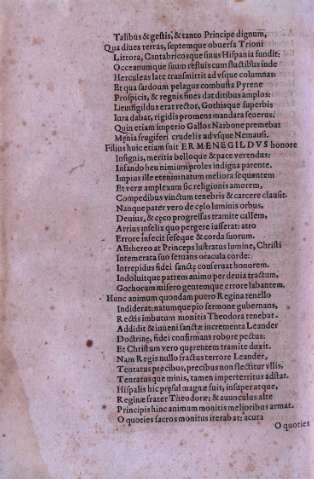 Talibus & gestis, & tanto Principe dignum,
Qua diues terras, septemque obuersa Trioni
Littora, Cantabricosque sinus Hispania fundit.
Oceanumque suum refluis cum fluctibus inde
Herculeas late transmittit adusque columnas
Et qua surdoum pelagus combusta Pyrene
Prospicit, & regnis fines dat ditibus amplos:
Lieuuigildus erat rector, Gothisque superbis
Iura dabat, rigidis promens mandata seueris.
Quin etiam imperio Gallos Narbone premebat
Mœnia frugiferi crudelis adusque Nemausi.
Filius huic etiam fuit ERMENEGILDVS honore
Insignis, meritis belloque & pace verendus:
Infando heu nimium proles indigna parente.
Impius ille etenim natum meliora sequentem
Et veræ amplexum sic religionis amorem,
Compedibus vinctum tenebris & carcere clausit.
Nanque pater vero de cęlo luminis orbus,
Deuius, & cęco progressus tramite callem,
Arrius infelix quo pergere iusserat: atro
Errore infecit seseque & corda suorum.
Aethereo at Princeps lustratus lumine, Christi
Intemerata suo seruans oracula corde:
Intrepidus fidei sanctę conseruat honorem.
Indoluitque patrem animo per deuia tractum,
Gothorum misero gentemque errore labantem.
Hunc animum quondam puero Regina tenello
Indiderat: natumque pio sermone gubernans,
Rectis imbutum monitis Theodora tenebat.
Addidit & iuueni sanctæ incrementa Leander
Doctrinę, fidei confirmans robore pectus:
Et Christum vero quærentem tramite duxit.
Nam Regis nullo fractus terrore Leander,
Tentatus precibus, precibus non flectitur vllis,
Tentatusque minis, tamen imperterritus adstat.
Hispalis hic pręsul magnæ fuit, insuperatque,
Reginæ frater Theodoræ; & auunculus alte
Principis hinc animum monitis melioribus armat.
O quoties sacros monitus iterabat: acuta
O quoties